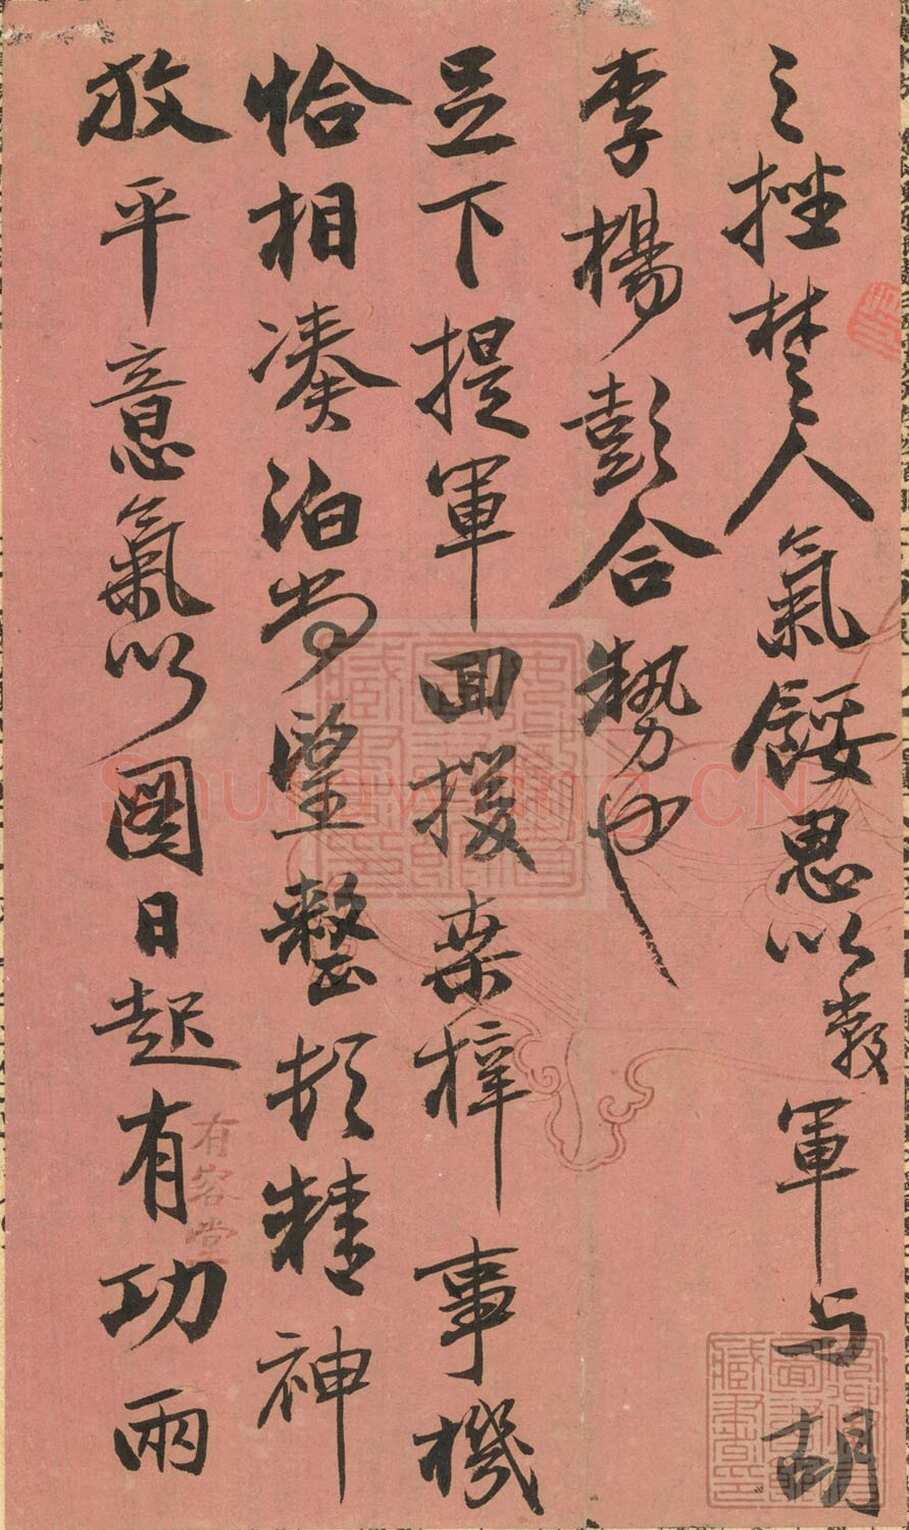 之挫楚人氣餒思以敦軍与胡
李楊彭合勢也
足下提軍回援桑梓事機
恰相湊泊尚望整頓精神
放平意氣以國日起有功兩
有容堂
Shuhuawang.CN